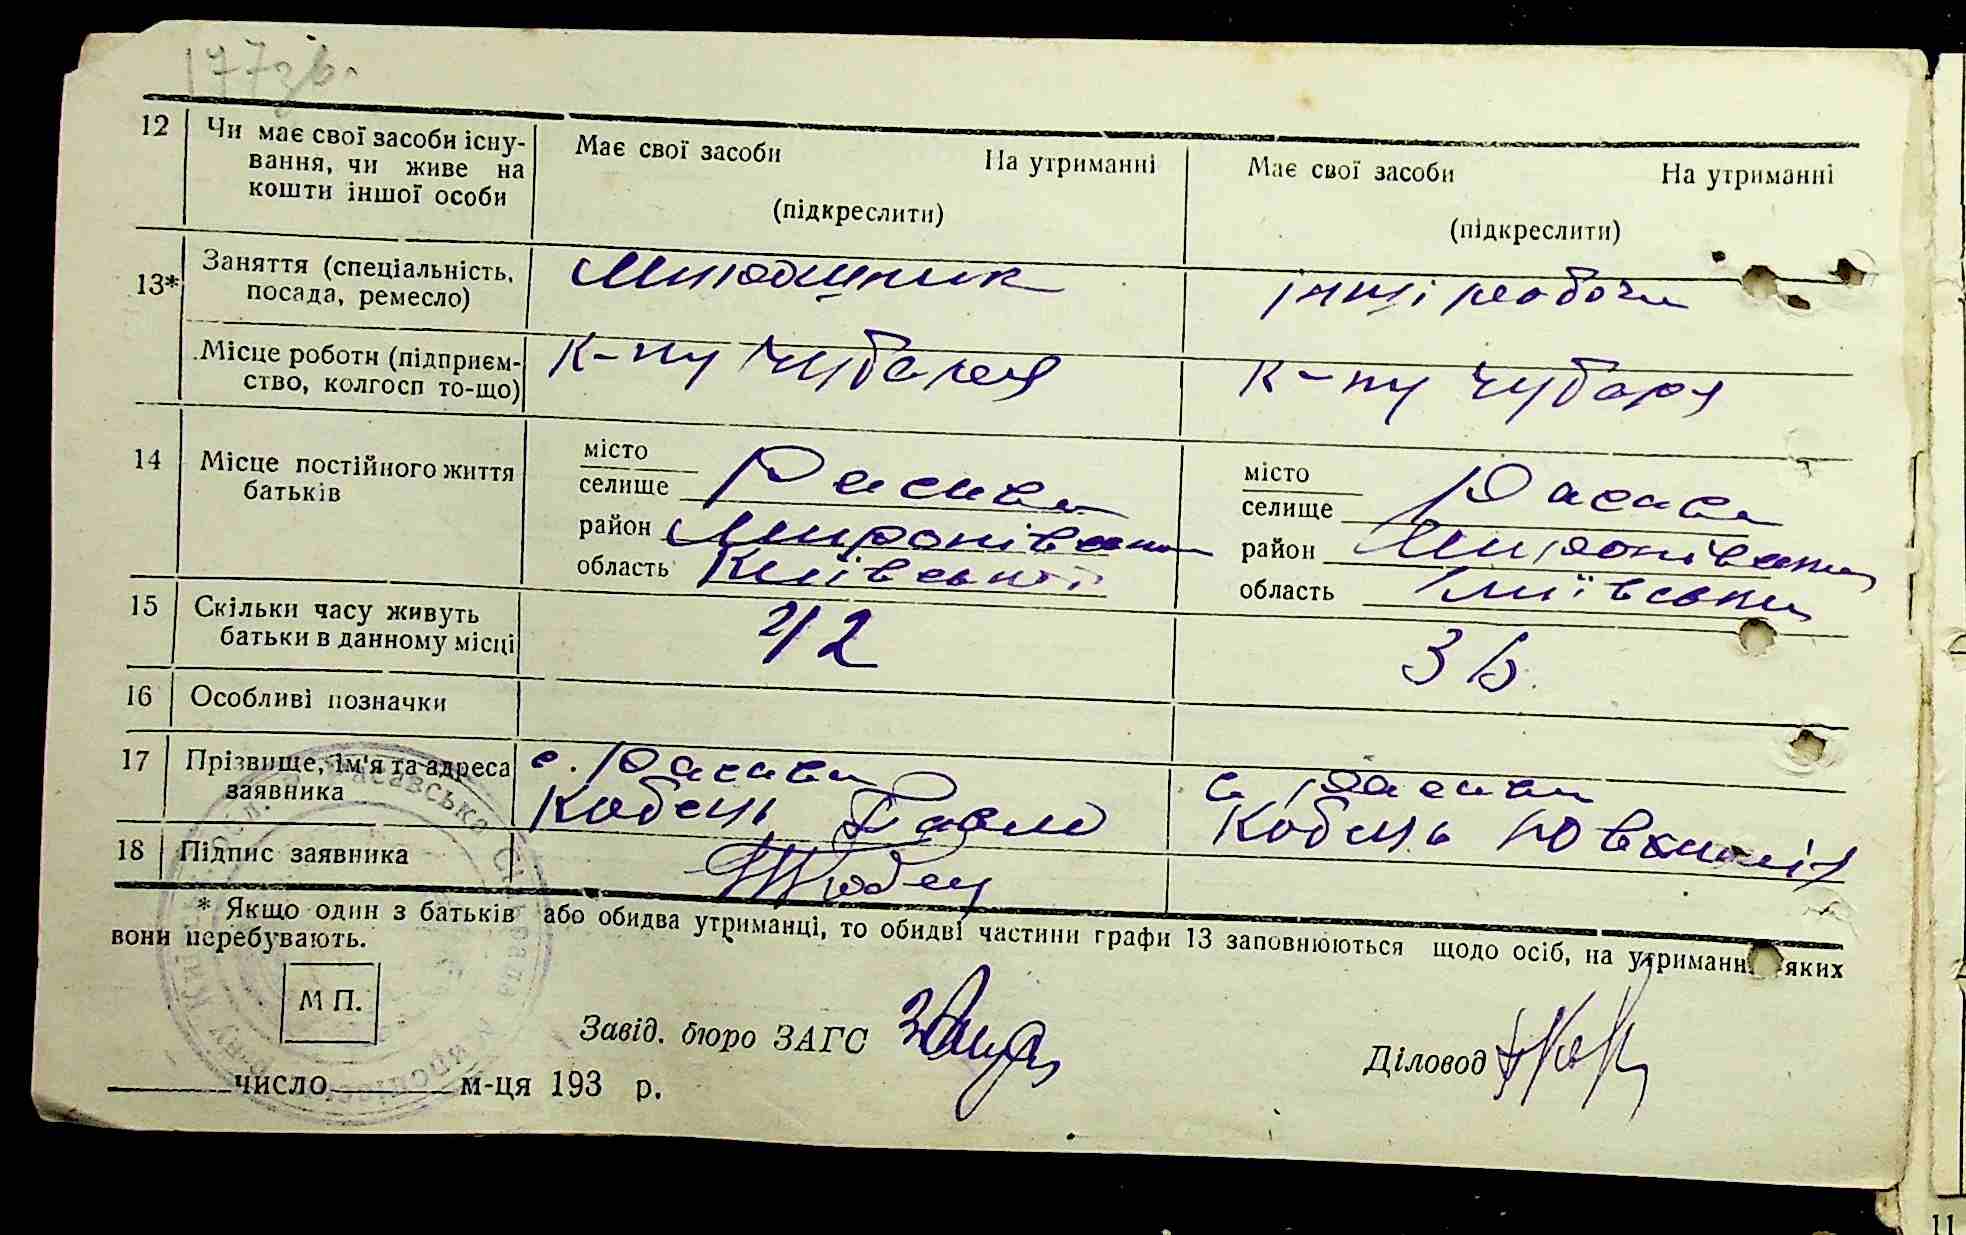 177зв.
12 Чи має свої засоби існу-
вання, чи живе на
кошти іншої особи
Має свої засоби На утриманні
(підкреслити)
Має свої засоби На утриманні
(підкреслити)
13* Заняття (спеціальність,
посада, ремесло)
інші робочи
Місце роботи (підприєм-
ство, колгосп то-що)
к-пу Чубаря
к-пу Чубаря
14 Місце постійного життя
батьків
місто
селище Расава
район Миронівський
область Київської
місто
селище Расава
район Миронівський
область Київський
15 Скільки часу живуть
батьки в данному місці
42
36
16 Особливі позначки
17 Прізвище, ім'я та адреса
заявника
с. Расава
Кобець Павло
с. Расава
Кобець
18 Підпис заявника
Кобец
* Якщо один з батьків або обидва утриманці, то обидві частини графи 13 заповнюються щодо осіб, на утриманні яких
вони перебувають.
М П.
Завід. бюро ЗАГС
Діловод
число м-ця 193 р.
11